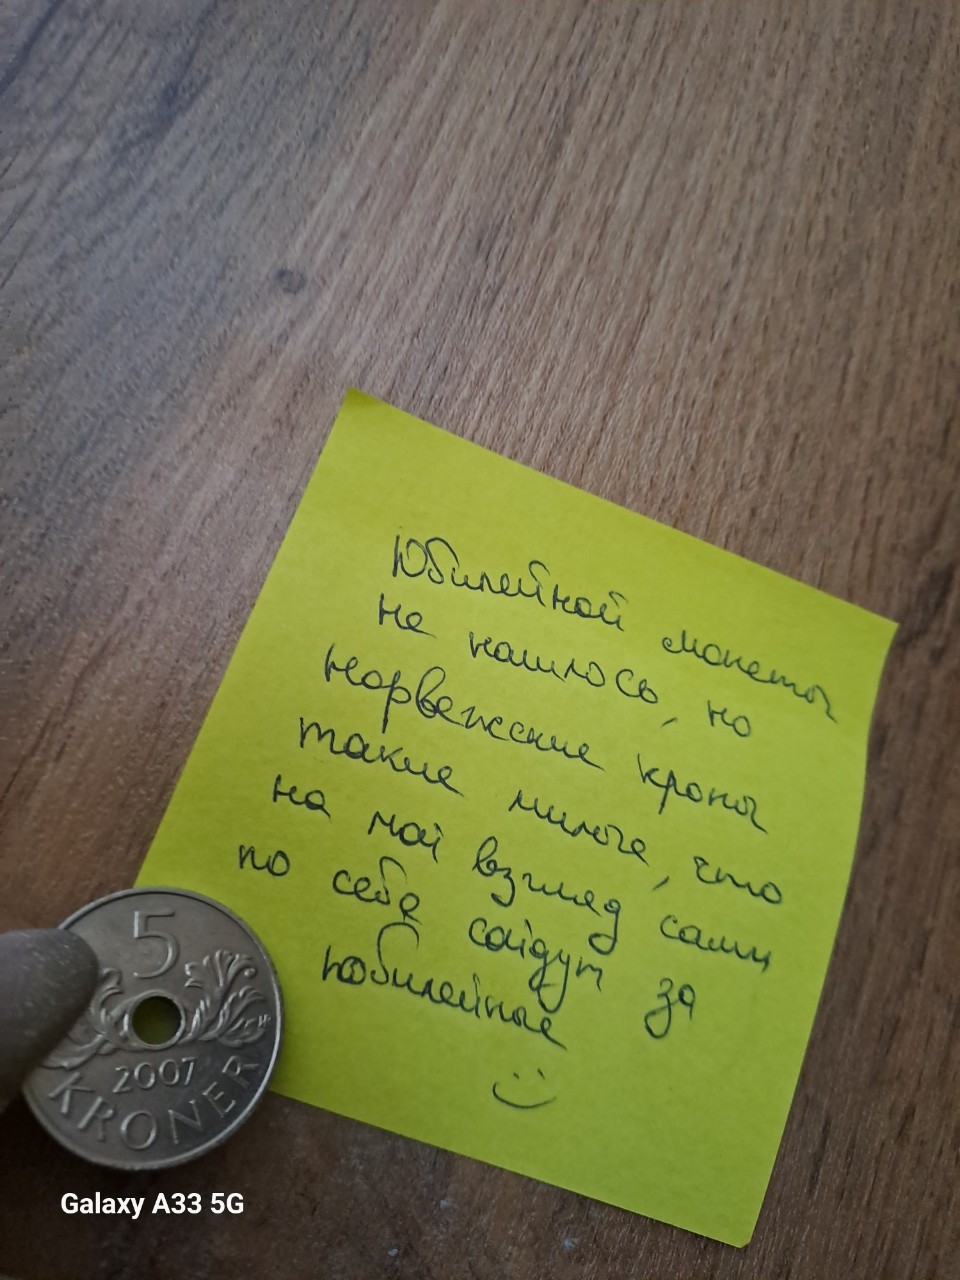 Юбилейной монеты
не нашлось, но
норвежские кроны
такие милые, что
на мой взгляд сами
по себе сойдут за
юбилейные
5
2007
KRONER
Galaxy A33 5G